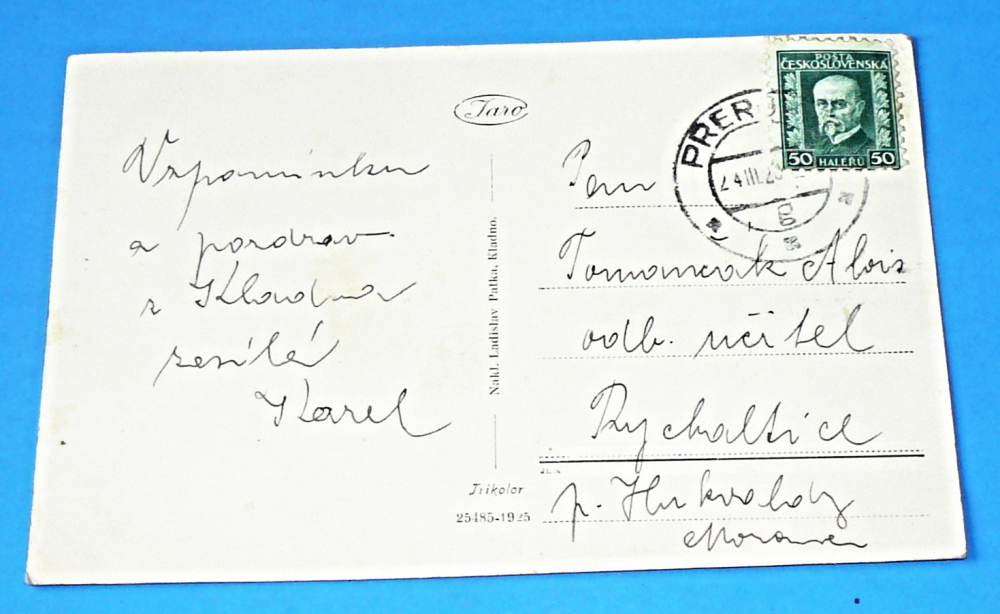 Taro
Vzpomínku
a pozdrav
z Kladna
zesílá
Karel
Nakl. Ladislav Patka, Kladno.
Trikolor
25485-1925
POŠTA
ČESKOSLOVENSKÁ
50 HALÉŘŮ 50
PŘER
24 III.
Pan
Tomanczak Alois
odb. učitel
Rychaltice
p. Hukvaldy
Morava